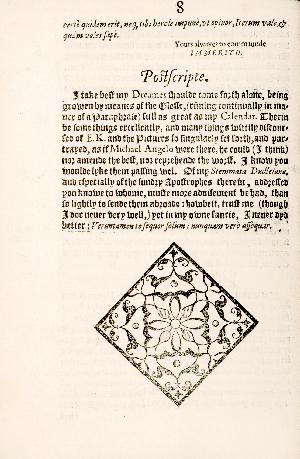 8
certè quidem erit, neq, tibi hercle impune, vt opinor, Iterum vale, &
quàm voles sæpè.
Yours alwayes to commaunde
IMMERITO.
Postscripte.
I take best my Dreames shoulde come forth alone, being
growen by meanes of the Glosse, (running continually in ma-
ner of a Paraphrase) full as great as my Calendar. Therin
be some things excellently, and many things wittily discour-
sed of E. K. and the Pictures so singularly set forth, and pur-
trayed, as if Michael Angelo were there, he could (I think)
nor amende the best, nor reprehende the worst. I know you
woulde lyke them passing wel. Of my Stemmata Dudleiana,
and especially of the sundry Apostrophes therein, addressed
you knowe to whome, muste more aduisement be had, than
so lightly to sende them abroade: howbeit, trust me (though
I doe neuer very well,) yet in my owne fancie, I neuer dyd
better: Veruntamen te sequor solùm: nunquam verò assequar.